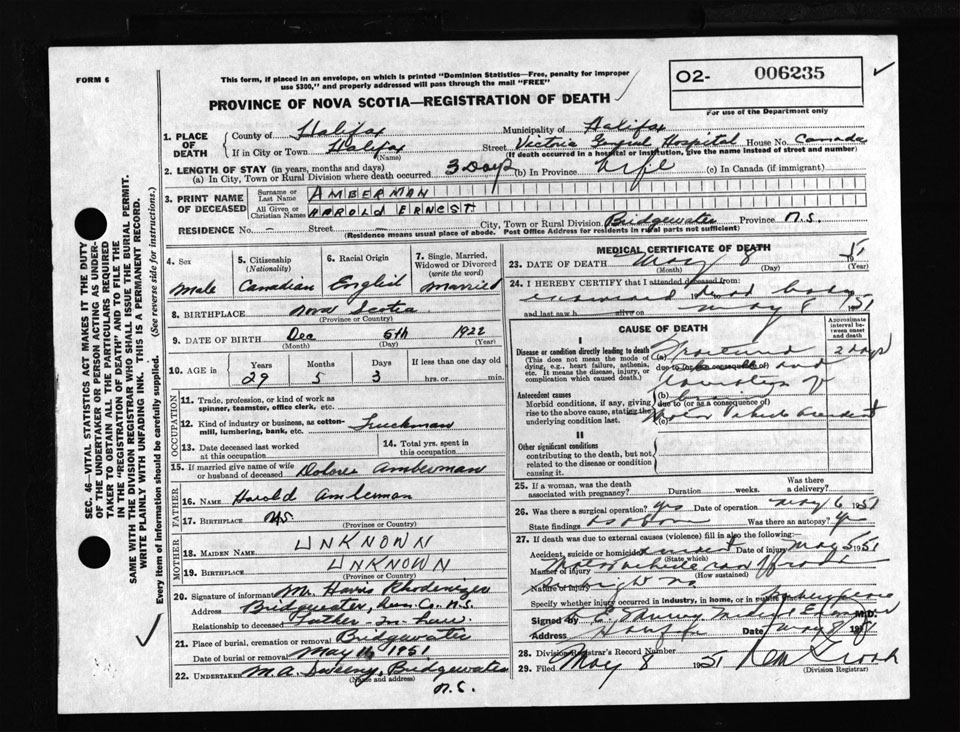 FORM 6
This form, if placed in an envelope, on which is printed "Dominion Statistics—Free, penalty for improper
use $300," and properly addressed will pass through the mail "FREE"
O2- 006235
For use of the Department only
PROVINCE OF NOVA SCOTIA—REGISTRATION OF DEATH
1. PLACE OF DEATH
County of Halifax Municipality of Halifax
If in City or Town Halifax Street Victoria General Hospital House No. Canada
(Name) (If death occurred in a hospital or institution, give the name instead of street and number)
2. LENGTH OF STAY (in years, months and days)
(a) In City, Town or Rural Division where death occurred 3 Days (b) In Province life (c) In Canada (if immigrant)
3. PRINT NAME OF DECEASED
Surname or Last Name AMBERMAN
All Given or Christian Names HAROLD ERNEST
RESIDENCE No. – Street – City, Town or Rural Division Bridgewater Province N.S.
(Residence means usual place of abode. Post Office Address for residents in rural parts not sufficient)
4. Sex
5. Citizenship (Nationality)
6. Racial Origin
7. Single, Married, Widowed or Divorced (write the word)
Male Canadian English Married
8. BIRTHPLACE Nova Scotia
(Province or Country)
9. DATE OF BIRTH Dec 5th 1922
(Month) (Day) (Year)
10. AGE in Years Months Days If less than one day old
29 5 3 hrs. or min.
OCCUPATION
11. Trade, profession, or kind of work as
spinner, teamster, office clerk, etc.
12. Kind of industry or business, as cotton-
mill, lumbering, bank, etc. Truckman
13. Date deceased last worked at this occupation
14. Total yrs. spent in this occupation
15. If married give name of wife
or husband of deceased Dolores Amberman
FATHER
16. NAME Harold Amberman
17. BIRTHPLACE N.S.
(Province or Country)
MOTHER
18. MAIDEN NAME UNKNOWN
19. BIRTHPLACE UNKNOWN
(Province or Country)
20. Signature of informant Mr. Harris Rhodenizer
Address Bridgewater, Lun. Co. N.S.
Relationship to deceased Father-in-law
21. Place of burial, cremation or removal Bridgewater
Date of burial or removal May 11, 1951
22. UNDERTAKER M.A. Sweeny, Bridgewater
(Name and address)
N.S.
MEDICAL CERTIFICATE OF DEATH
23. DATE OF DEATH May 8 1951
(Month) (Day) (Year)
24. I HEREBY CERTIFY that I attended deceased from
examined dead body
and last saw h alive on May 8 1951
CAUSE OF DEATH
Approximate interval between onset and death
I
Disease or condition directly leading to death
(This does not mean the mode of
dying, e.g., heart failure, asthenia,
etc. It means the disease, injury, or
complication which caused death.)
(a) 2 days
due to (or as a consequence of)
and
Antecedent causes
Morbid conditions, if any, giving
rise to the above cause, stating the
underlying condition last.
(b)
due to (or as a consequence of)
Motor vehicle accident
(c)
II
Other significant conditions
contributing to the death, but not
related to the disease or condition
causing it.
25. If a woman, was the death
associated with pregnancy? Duration weeks. Was there a delivery?
26. Was there a surgical operation? yes Date of operation May 6 1951
State findings Was there an autopsy? yes
27. If death was due to external causes (violence) fill in also the following:—
Accident, suicide or homicide? accident Date of injury May 5 1951
(State which)
Manner of injury Motor vehicle ran off road
(How sustained)
Nature of injury
Specify whether injury occurred in industry, in home, or in public place
Signed by Medical Examiner M.D.
Address Date May 8 1951
28. Division Registrar's Record Number
29. Filed May 8 1951
(Division Registrar)
SEC. 46—VITAL STATISTICS ACT MAKES IT THE DUTY
OF THE UNDERTAKER OR PERSON ACTING AS UNDER-
TAKER TO OBTAIN ALL THE PARTICULARS REQUIRED
IN THE "REGISTRATION OF DEATH" AND TO FILE THE
SAME WITH THE DIVISION REGISTRAR WHO SHALL ISSUE THE BURIAL PERMIT.
WRITE PLAINLY WITH UNFADING INK. THIS IS A PERMANENT RECORD.
Every item of information should be carefully supplied. (See reverse side for instructions.)